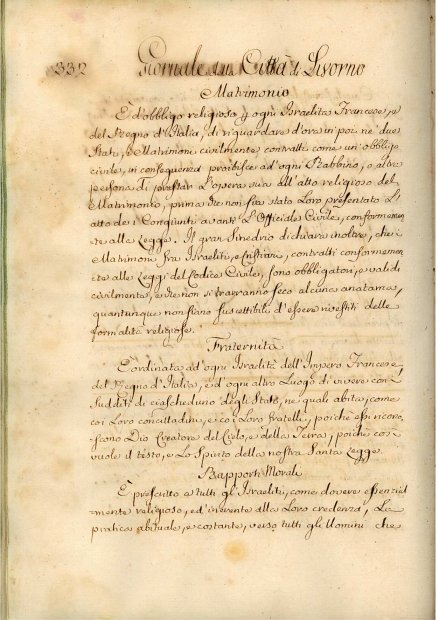 332 Giornale della Città di Livorno
Matrimonio
È d'obbligo religioso p ogni Israelita Francese, e
del Regno d'Italia, di riguardare d'ora in poi ne' due
Stati, i Matrimoni civilmente contratti come un obbligo
civile, in conseguenza proibisce ad ogni Rabbino, o altra
persona di prestar l'opera sua all'atto religioso del
Matrimonio, prima che non sia stato loro presentato l'
atto dei Congiunti avanti l'Officiale Civile, conformemen
te alla Legge. Il gran Sinedrio dichiara inoltre, che i
Matrimoni fra Israeliti, e Cristiani, contratti conformemen
te alle Leggi del Codice Civile, sono obbligatori, e validi
civilmente, e che non si trarranno seco alcuna anatema,
quantunque non siano suscettibili d'essere rivestiti delle
formalità religiose.
Fraternità
È ordinato ad ogni Israelita dell'Impero Francese,
del Regno d'Italia, e d'ogni altro Luogo di vivere con i
Sudditi di ciascheduno degli Stati, ne' quali abita, come
coi Loro concittadini, e coi Loro fratelli, poichè essi ricono,
scono Dio Creatore del Cielo, e della Terra, poichè così
vuole il testo, e Lo Spirito della nostra Santa Legge.
Rapporti Morali
È prescritto a tutti gli Israeliti, come dovere essenzial
mente religioso, ed inerente alla Loro credenza, La
pratica abituale, e costante, verso tutti gli Uomini che